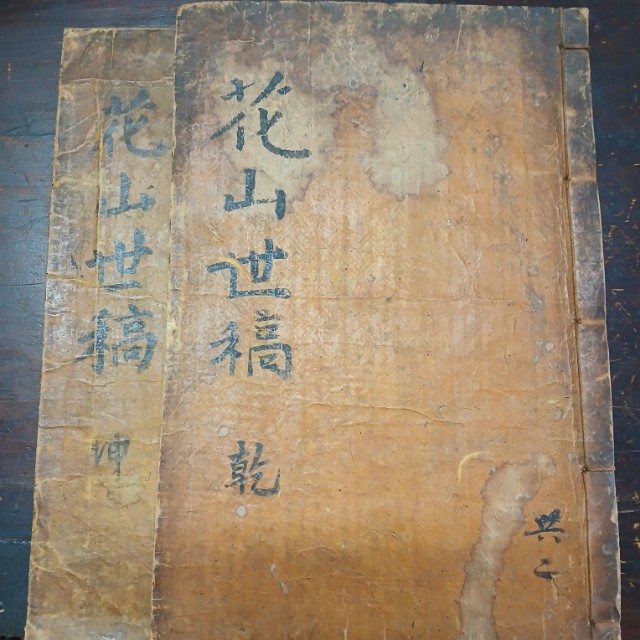 花山世稿 乾
共二
花山世稿 坤